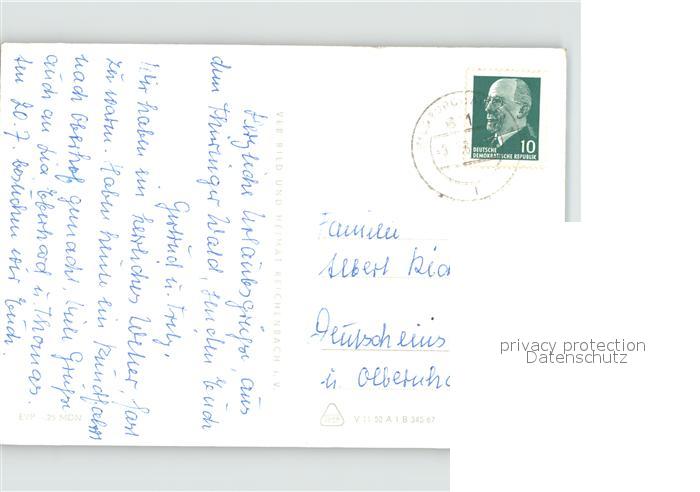 Herzliche Urlaubsgrüße, aus
dem Thüringer Wald, senden Euch
Gertrud u. Fritz.
Wir haben ein herrliches Wetter, fast
zu warm. Haben heute ein Rundfahrt
nach Oberhof gemacht. Viele Grüße
auch an Lia, Eberhard u. Thomas.
Am 20.7. besuchen wir Euch.
VEB BILD UND HEIMAT REICHENBACH I. V.
EVP -.25 MDN
10
DEUTSCHE
DEMOKRATISCHE REPUBLIK
Familie
Albert
Deutscheins
u. Olbernh
V 11 50 A 1 B 345 67
privacy protection
Datenschutz